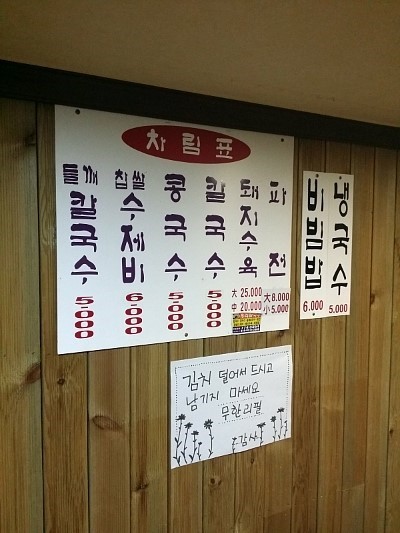 차림표
들깨 칼국수 5.000
찹쌀 수제비 6.000
콩국수 5.000
칼국수 5.000
돼지수육 大 25.000 中 20.000
파전 大 8.000 小 5.000
비빔밥 6.000
냉국수 5.000
김치 덜어서 드시고
남기지 마세요
무한리필
감사